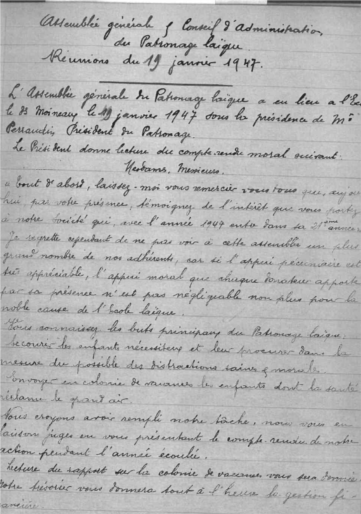 Assemblée générale & Conseil d'Administration
du Patronage laïque
Réunions du 19 janvier 1947.
L'Assemblée générale du Patronage laïque a eu lieu à l'Ec
le 19 janvier 1947 sous la présidence de Mr
Président du Patronage.
Le Président donne lecture du compte-rendu moral suivant.
Mesdames, Messieurs.
"Tout d'abord, laissez-moi vous remercier vous tous que, aujour
hui, par votre présence, témoignez de l'intérêt que vous portez
à notre Société qui, avec l'année 1947 entre dans sa année
Je regrette cependant de ne pas voir à cette assemblée un plus
grand nombre de nos adhérents, car si l'appui pécuniaire est
très appréciable, l'appui moral que chaque donateur apporte
par sa présence n'est pas négligeable non plus pour la
noble cause de l'Ecole laïque.
Vous connaissez les buts principaux du Patronage laïque.
Secourir les enfants nécessiteux et leur procurer dans la
mesure du possible des distractions saines & morales.
Envoyer en colonie de vacances les enfants dont la santé
réclame le grand air.
Nous croyons avoir rempli notre tâche, nous vous en
laissons juges en vous présentant le compte-rendu de notre
action pendant l'année écoulée.
Lecture du rapport sur la colonie de vacances vous sera donnée
Votre trésorier vous donnera tout à l'heure la gestion fi-
nancière